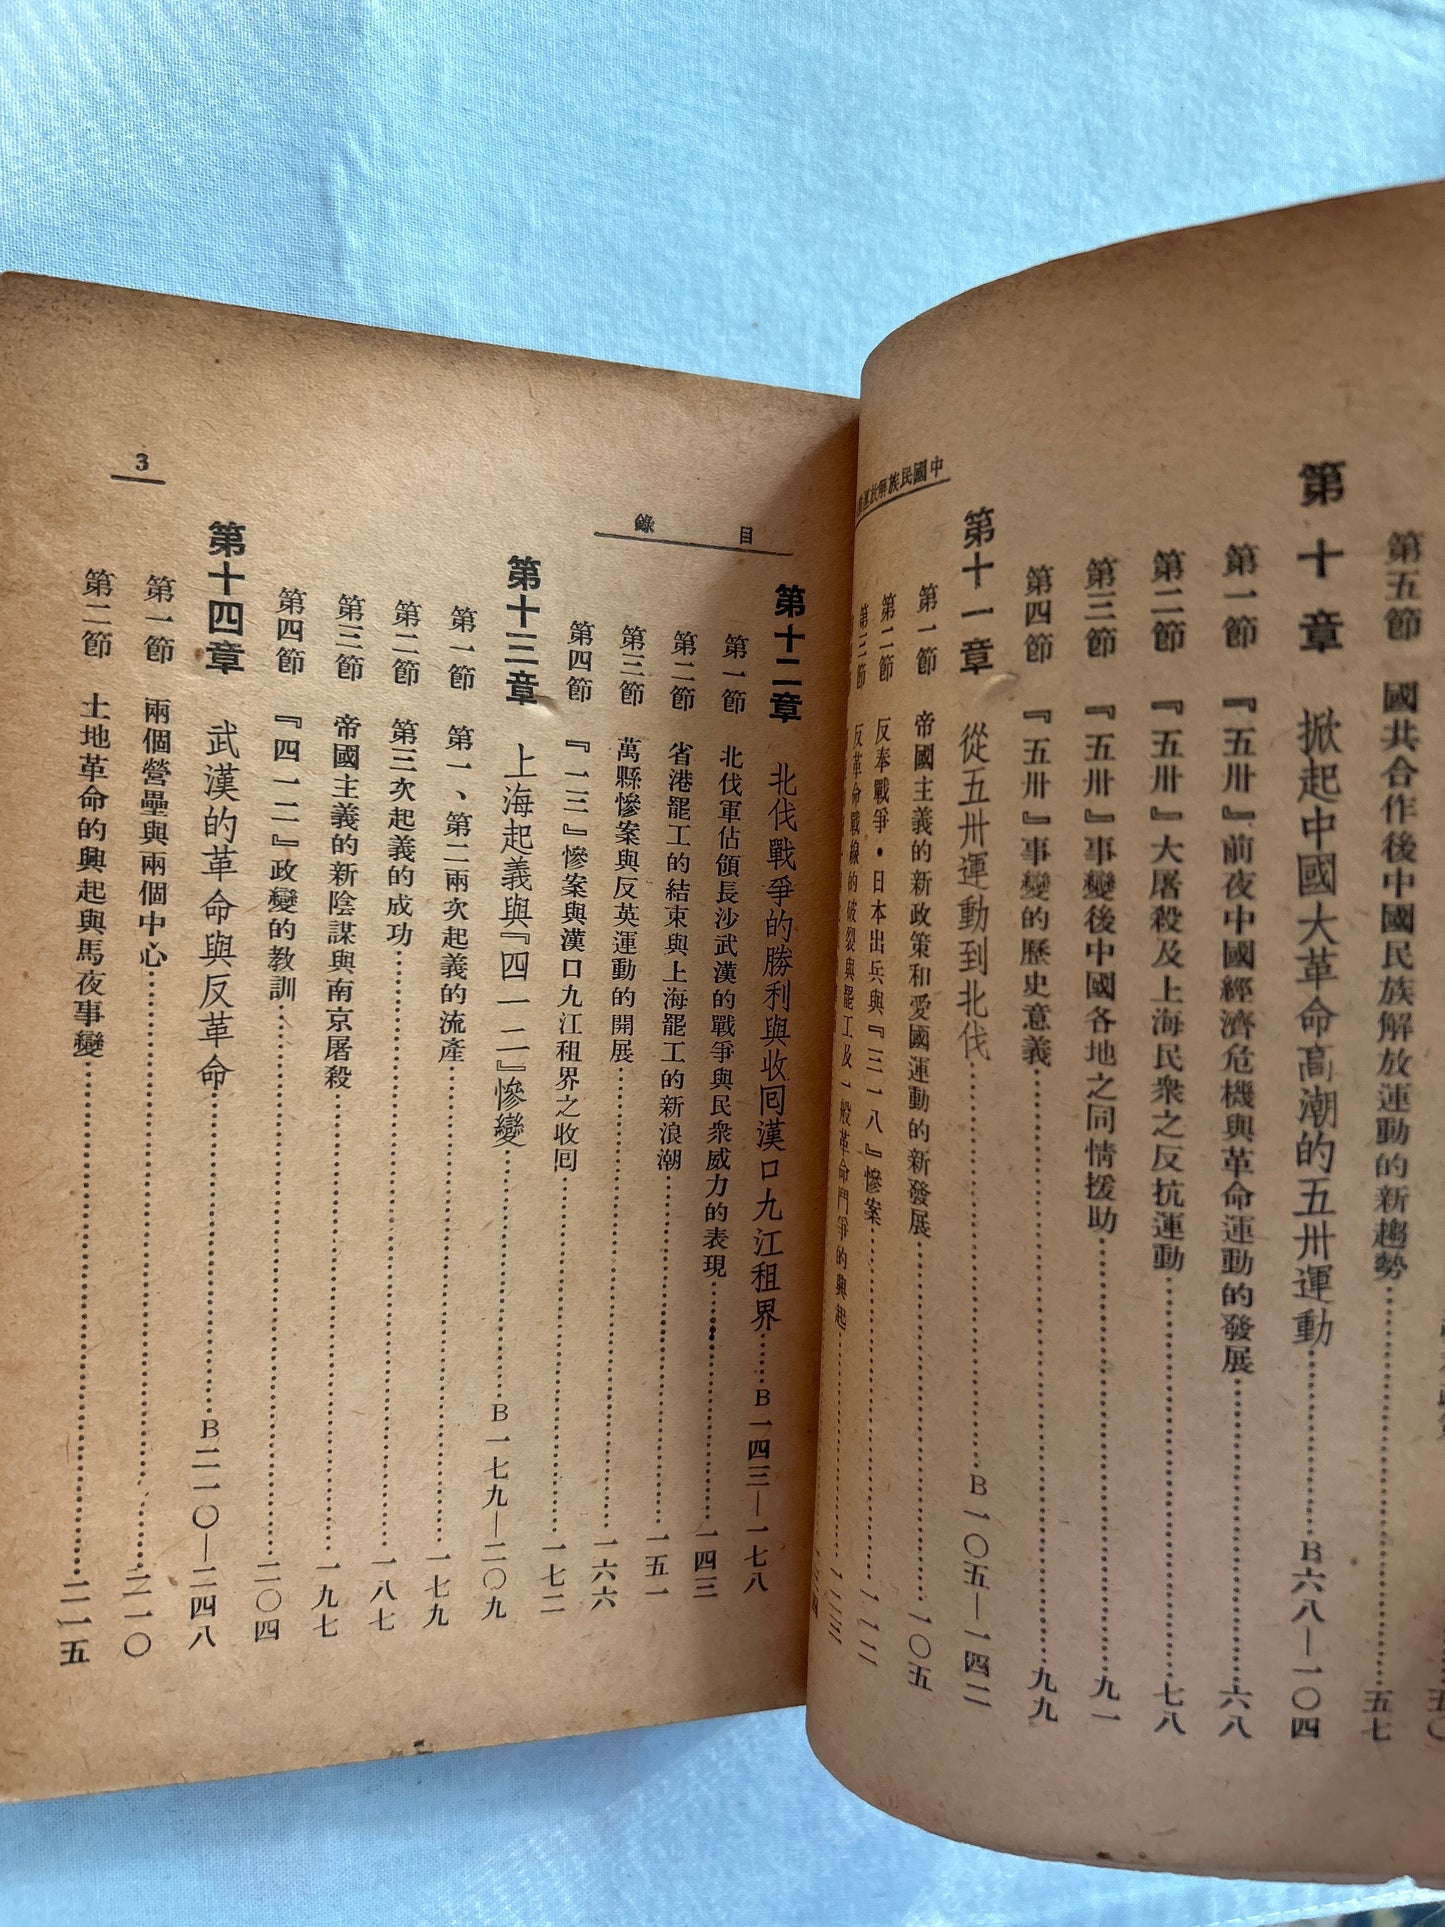 中國民族解放運
第五節　國共合作後中國民族解放運動的新趨勢……五七
第十章　掀起中國大革命高潮的五卅運動……B六八—一〇四
第一節　『五卅』前夜中國經濟危機與革命運動的發展……六八
第二節　『五卅』大屠殺及上海民衆之反抗運動……七八
第三節　『五卅』事變後中國各地之同情援助……九一
第四節　『五卅』事變的歷史意義……九九
第十一章　從五卅運動到北伐……B一〇五—一四二
第一節　帝國主義的新政策和愛國運動的新發展……一〇五
第二節　反奉戰爭・日本出兵與『三一八』慘案……一一二
第三節　反革命戰線的破裂與罷工及一般革命鬥爭的興起
目錄
3
第十二章　北伐戰爭的勝利與收囘漢口九江租界……B一四三—一七八
第一節　北伐軍佔領長沙武漢的戰爭與民衆威力的表現……一四三
第二節　省港罷工的結束與上海罷工的新浪潮……一五一
第三節　萬縣慘案與反英運動的開展……一六六
第四節　『一三』慘案與漢口九江租界之收囘……一七二
第十三章　上海起義與『四一二』慘變……B一七九—二〇九
第一節　第一、第二兩次起義的流產……一七九
第二節　第三次起義的成功……一八七
第三節　帝國主義的新陰謀與南京屠殺……一九七
第四節　『四一二』政變的教訓……二〇四
第十四章　武漢的革命與反革命……B二一〇—二四八
第一節　兩個營壘與兩個中心……二一〇
第二節　土地革命的興起與馬夜事變……二一五